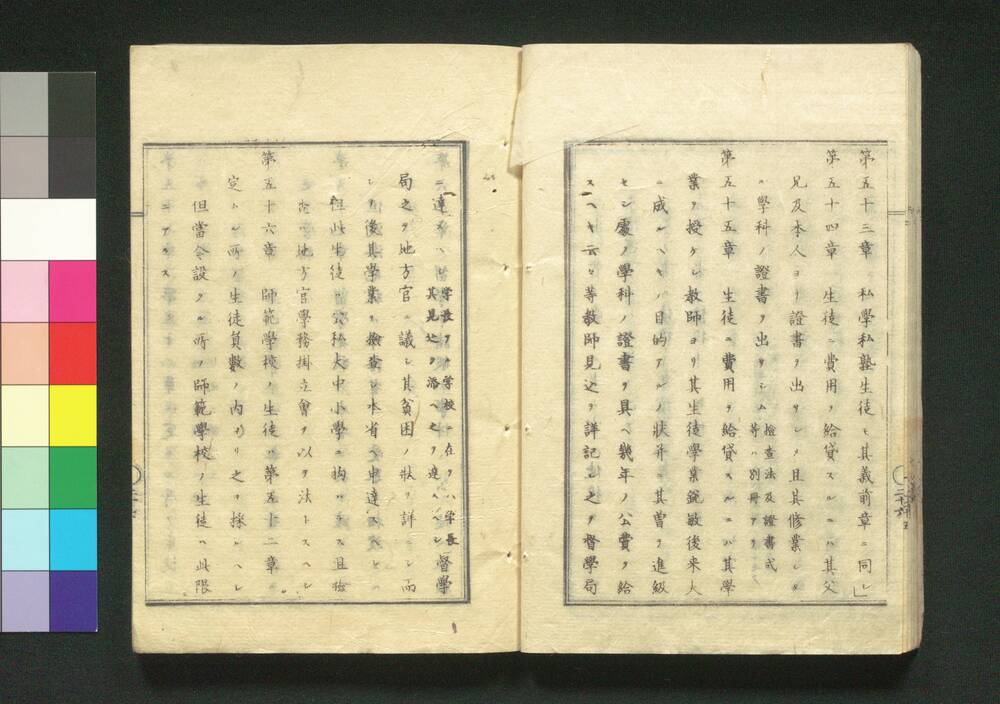 第五十三章 私學私塾生徒モ其義前章ニ同シ」
第五十四章 生徒ニ費用ヲ給貸スルニハ其父
兄及本人ヨリ證書ヲ出サシメ且其修業シタ
ル學科ノ證書ヲ出サシム
檢査法及證書式
等ハ別冊アリ
第五十五章 生徒ニ費用ヲ給貸スルニハ其學
業ヲ授ケシ教師ヨリ其生徒學業鋭敏後来大
ニ成ルヘキノ目的アルノ狀并ニ其曽ヲ進級
セシ處ノ學科ノ證書ヲ具ヘ幾年ノ公費ヲ給
スヘキ云々等教師見込ヲ詳記シ之ヲ督學局
ニ達スヘシ
學校ヲ
學校ニ在テハ學長
其見込ヲ添ヘ之ヲ達スヘシ
督學
局之ヲ地方官ニ議シ其貧困ノ狀ヲ詳ニシ而
シテ後其學業ヲ檢査シ本省ヘ申達スヘシ
但此生徒ハ公私大中小學ニ拘ハラス且檢
査ハ地方官學務掛立會ヲ以テ法トスヘシ
第五十六章 師範學校ノ生徒ハ第五十二章ニ
定ムル所ノ生徒員數ノ内ヨリ之ヲ採ルヘシ
但當今設クル所ノ師範學校ノ生徒ハ此限